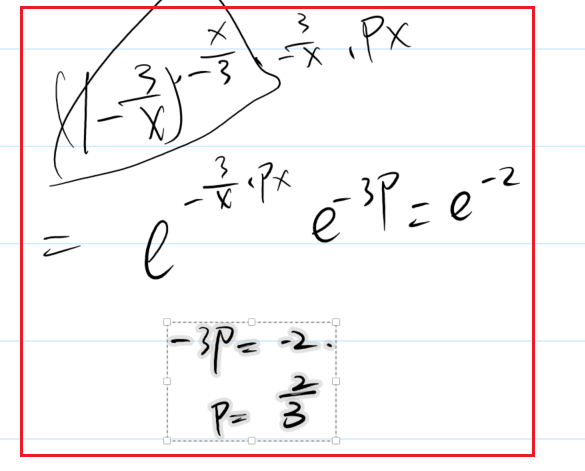 ((1 - 3/x)^(-x/3))^(-3/x · Px)
= e^(-3/x · Px) e^(-3P) = e^(-2)
-3P = -2.
P = 2/3